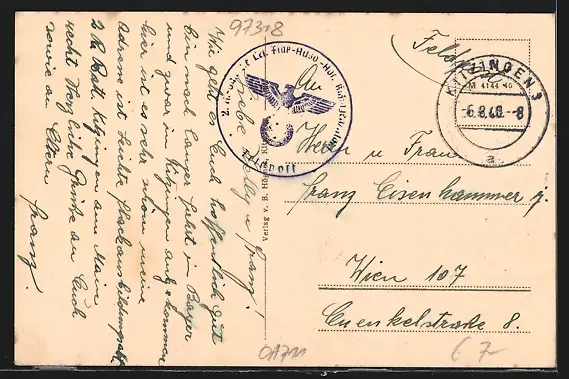 97318
Feldpost
KITZINGEN 3
M 4144 40
-6.8.40.-8
a
An
Herrn u Frau
Franz Eisenhammer j.
Wien 107
Cuenkelstraße 8.
Feldpost
Verlag v. B.
Liebe u Franz!
Wie geht es Euch hoffentlich gut
bin nach langer Fahrt in Bayern
und zwar in Kitzingen angekommen
hier ist es sehr schön meine
Adresse ist Leichte Flackausbildungsabt.
2 Batt. Kitzingen am Main
recht Herzliche Grüße an Euch
sowie an Eltern
Franz.
0A711
67-